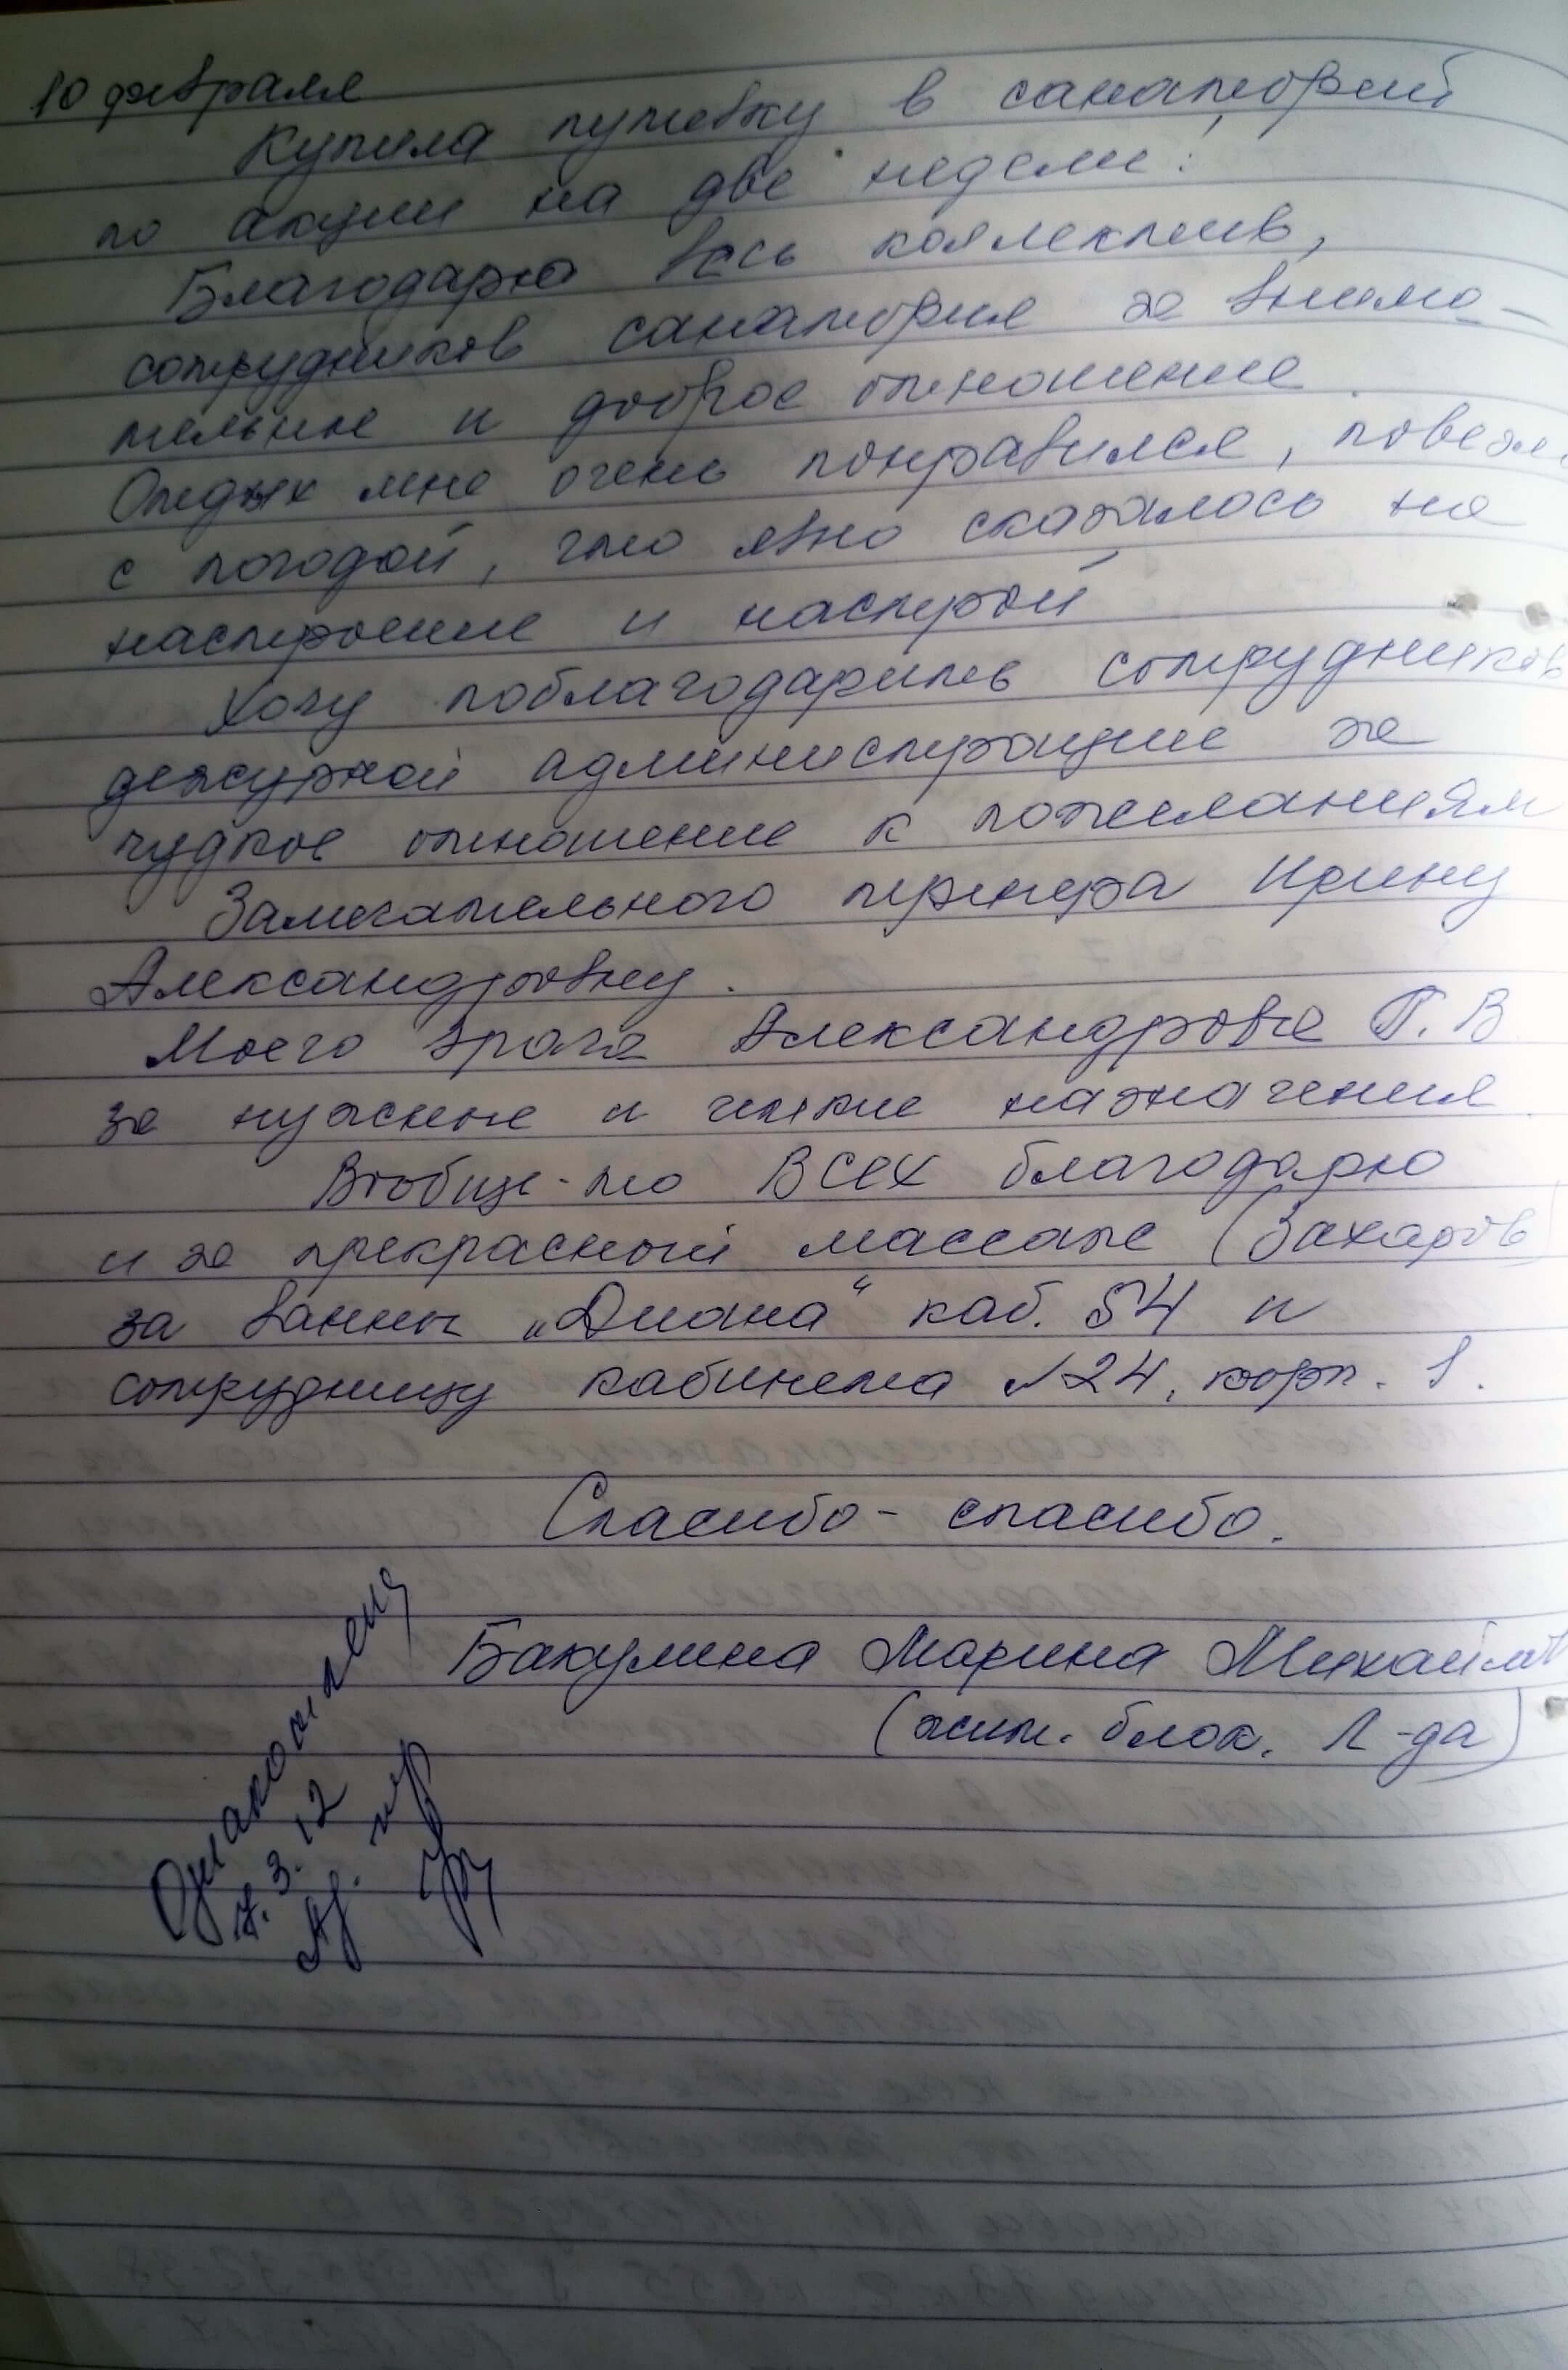 10 февраля
Купила путевку в санаторий
по акции на две недели.
Благодарю весь коллектив,
сотрудников санатория за внима-
тельное и доброе отношение.
Отдых мне очень понравился, повезл
с погодой, что явно сказалось на
настроение и настрой
Хочу поблагодарить сотрудников
дежурной администрации за
чудкое отношение к пожеланиям
Замечательного тренера Ирину
Александровну.
Моего врача Александрова Г. В
за нужные и четкие назначения.
Вообще-то ВСЕХ благодарю
и за прекрасный массаж (Захаров)
за ванны „Диана“ каб. 54 и
сотрудницу кабинета №24, корп. 1.
Спасибо - спасибо.
Бакулина Марина Михайлов
(жит. блок. Л-да)